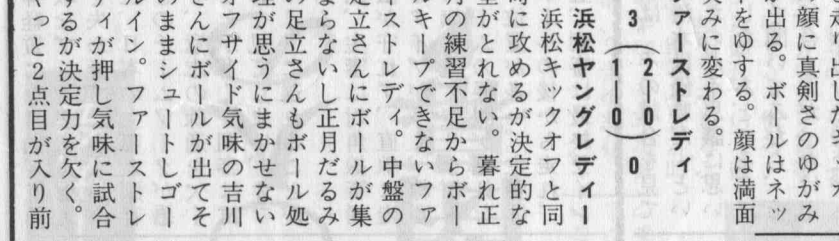 顔に真剣さのゆがみ
が出る。ボールはネッ
トをゆする。顔は満面
笑みに変わる。
ァーストレディ
3（2—0 1—0）0
浜松ヤングレディー
浜松キックオフと同
時に攻めるが決定的な
型がとれない。暮れ正
月の練習不足からボー
ルキープできないファ
ーストレディ。中盤の
足立さんにボールが集
まらないし正月だるみ
の足立さんもボール処
理が思うにまかせない
オフサイド気味の吉川
さんにボールが出てそ
のままシュートしゴー
ルイン。ファーストレ
ディが押し気味に試合
するが決定力を欠く。
やっと2点目が入り前